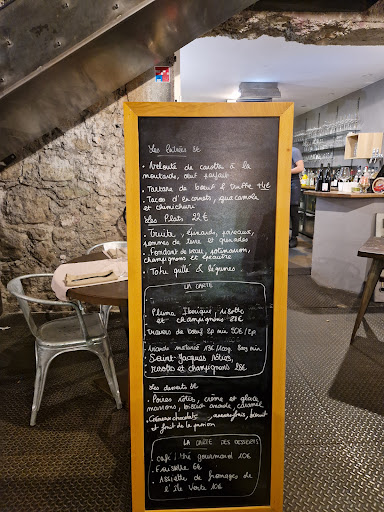 Les Entrées 8€
• Velouté de carottes à la
moutarde, œuf parfait
• Tartare de bœuf & truffe +4€
• Tacos d'encornets, guacamole
et chimichuri
Les Plats 22€
• Truite, épinards,
pommes de terre &
• Fondant de veau,
champignons et épeautre
• Tofu grillé & légumes
LA CARTE
Pluma Ibérique, risotto
et champignons 28€
Travers de bœuf 2p min 30€/2p
Viande maturée 13€/100g 800g min
• Saint-Jacques rôties,
risotto et champignons 28€
Les desserts 8€
• Poires rôties, crème et glace
marrons, biscuit amande, caramel
• Crémeux chocolats, biscuit
et fruit de la passion
LA CARTE DES DESSERTS
Café / thé gourmand 10€
• 6€
• Assiette de fromages de
l'île verte 10€